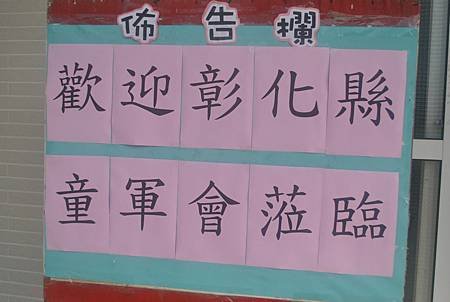 佈告欄
歡迎彰化縣
童軍會蒞臨